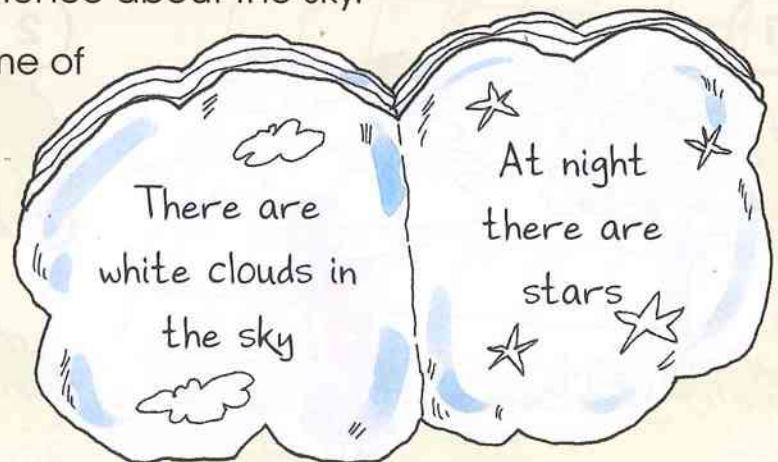 about the sky.
ne of
There are
white clouds in
the sky
At night
there are
stars